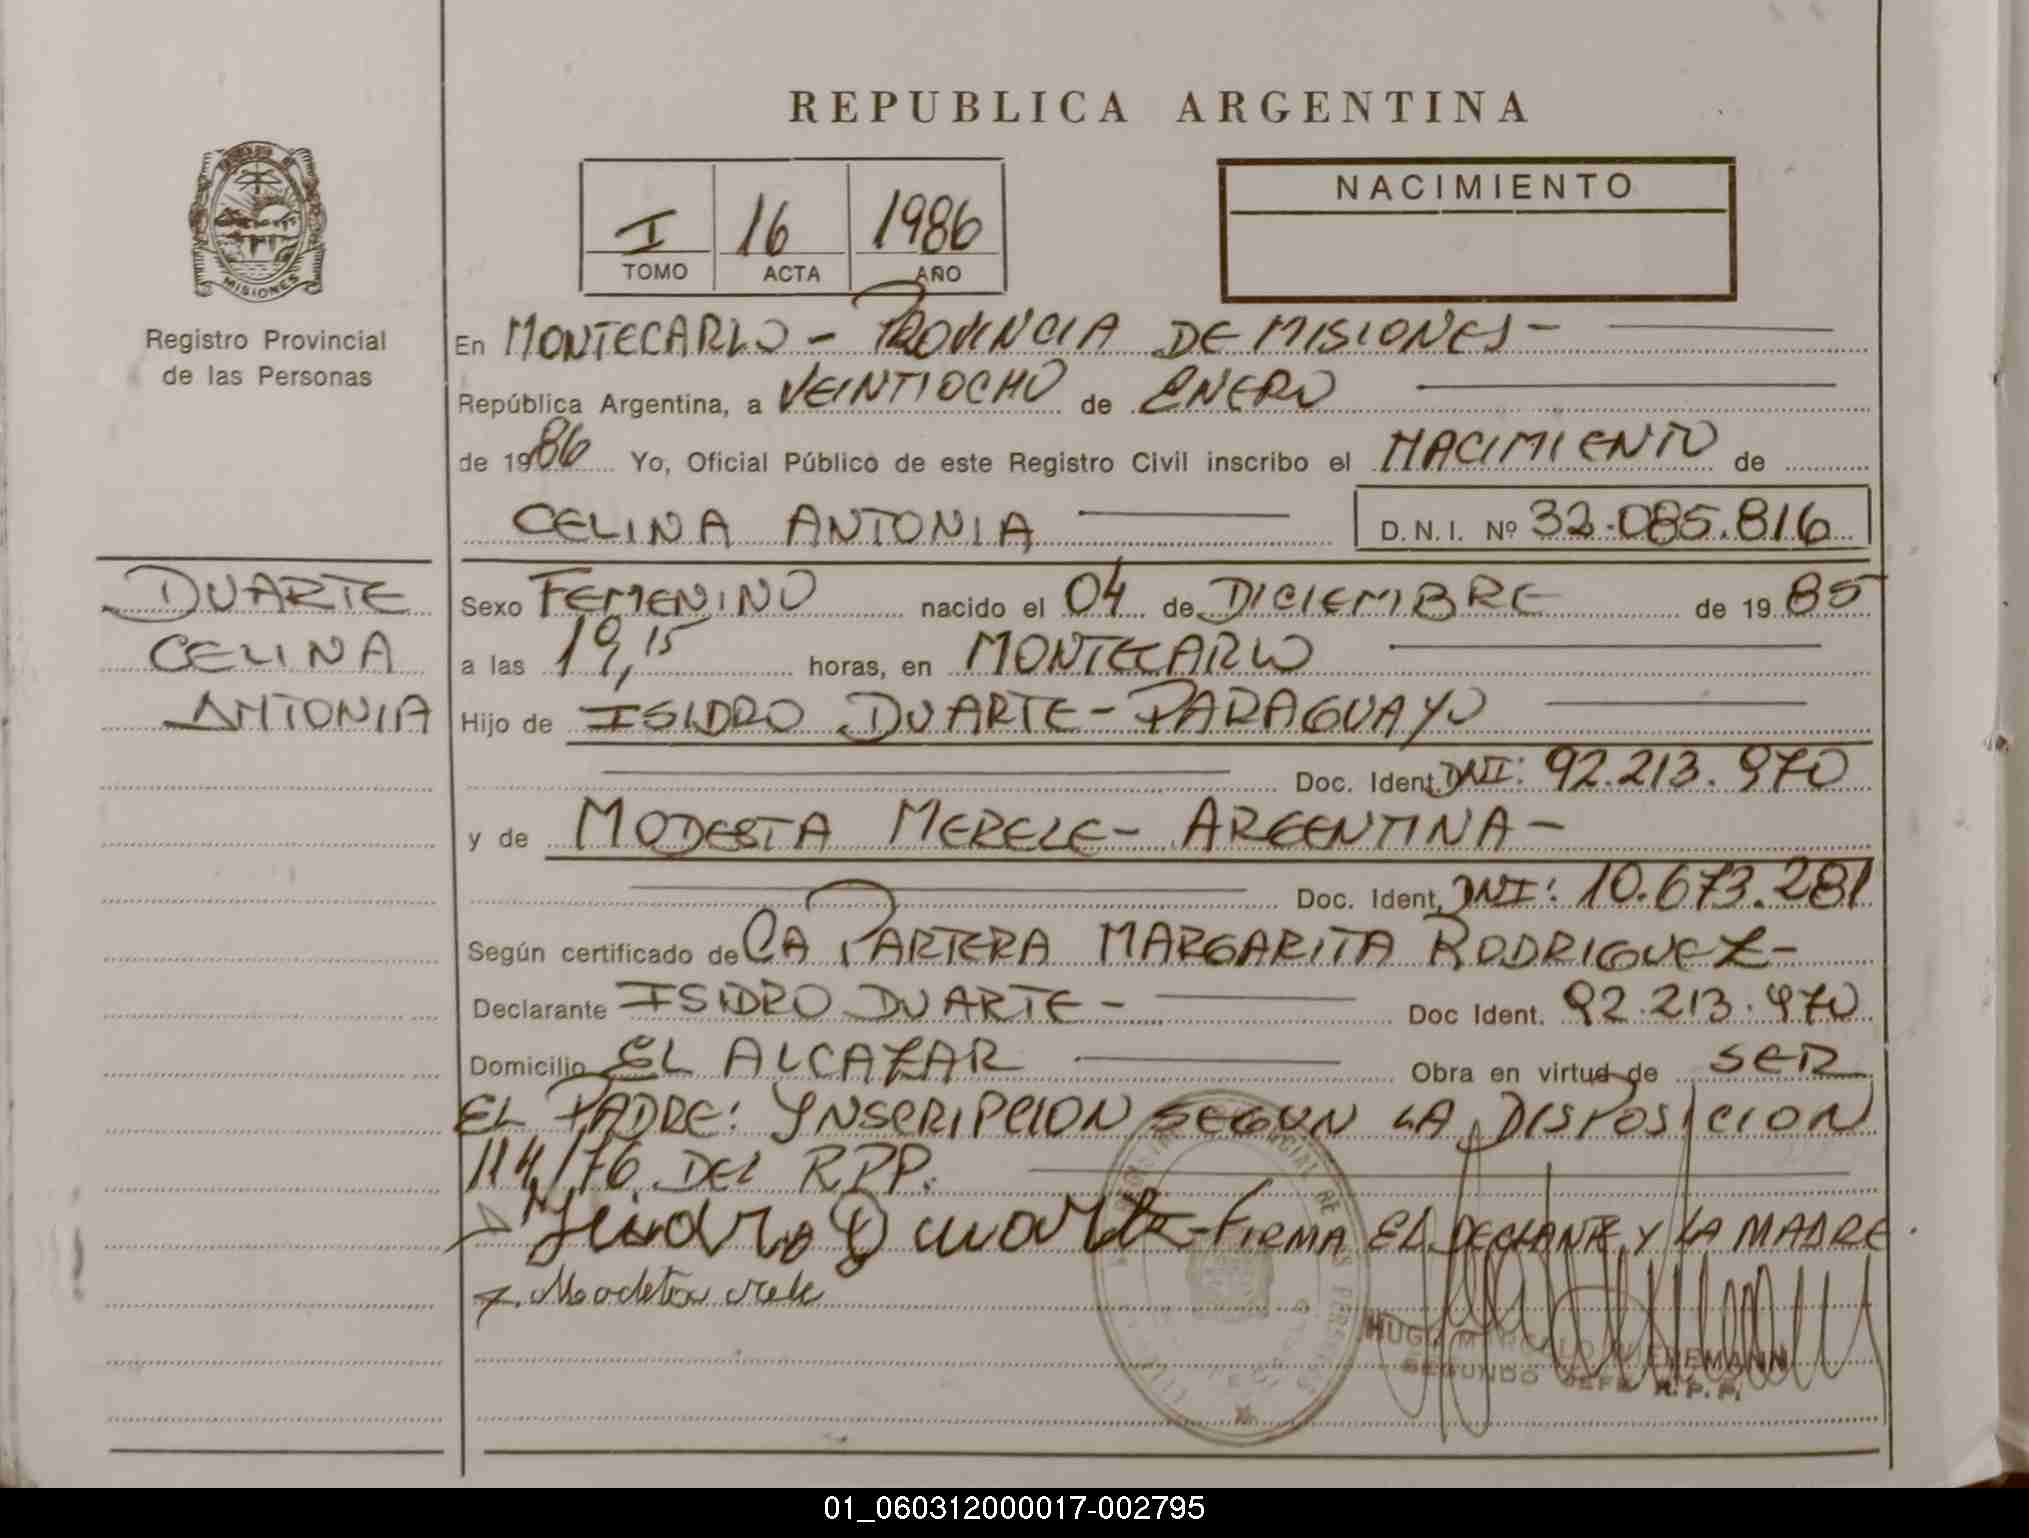 REPUBLICA ARGENTINA
NACIMIENTO
I 16 1986
TOMO ACTA AÑO
MISIONES
Registro Provincial
de las Personas
DUARTE
CELINA
ANTONIA
En MONTECARLO - PROVINCIA DE MISIONES -
República Argentina, a VEINTIOCHO de ENERO
de 1986 Yo, Oficial Público de este Registro Civil inscribo el NACIMIENTO de
CELINA ANTONIA D.N.I. Nº 32.085.816
Sexo FEMENINO nacido el 04 de DICIEMBRE de 1985
a las 19,15 horas, en MONTECARLO
Hijo de ISIDRO DUARTE - PARAGUAYO
Doc. Ident. DNI: 92.213.970
y de MODESTA MERELE - ARGENTINA -
Doc. Ident. DNI: 10.673.281
Según certificado de LA PARTERA MARGARITA RODRIGUEZ -
Declarante ISIDRO DUARTE - Doc Ident. 92.213.970
Domicilio EL ALCAZAR Obra en virtud de SER
EL PADRE: YNSCRIPCION SEGUN LA DISPOSICION
114/76 DEL RPP.
Isidro Duarte - FIRMA EL DECLANTE Y LA MADRE.
HUGO
SEGUNDO JEFE R.P.P.
01_060312000017-002795